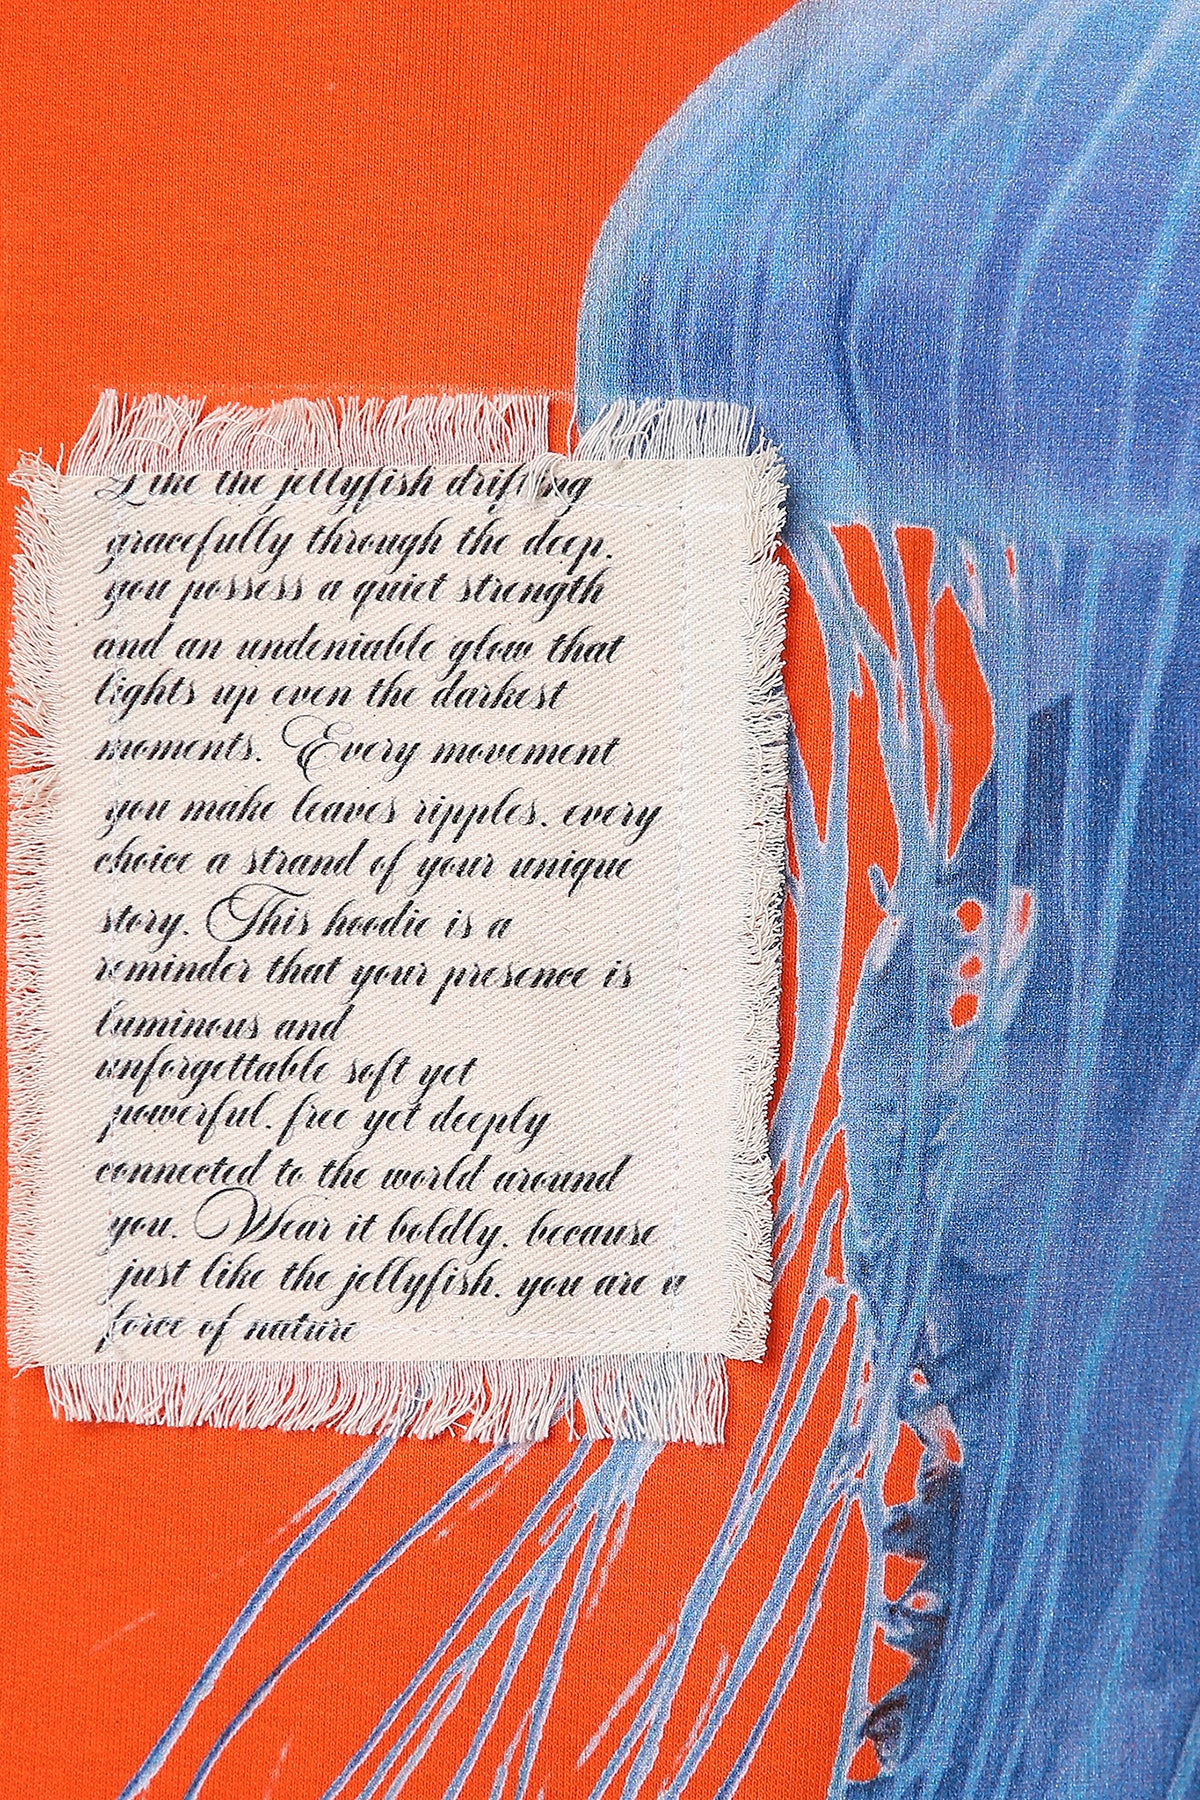 Like the jellyfish drifting
gracefully through the deep,
you possess a quiet strength
and an undeniable glow that
lights up even the darkest
moments. Every movement
you make leaves ripples, every
choice a strand of your unique
story. This hoodie is a
reminder that your presence is
luminous and
unforgettable soft yet
powerful, free yet deeply
connected to the world around
you. Wear it boldly, because
just like the jellyfish, you are a
force of nature